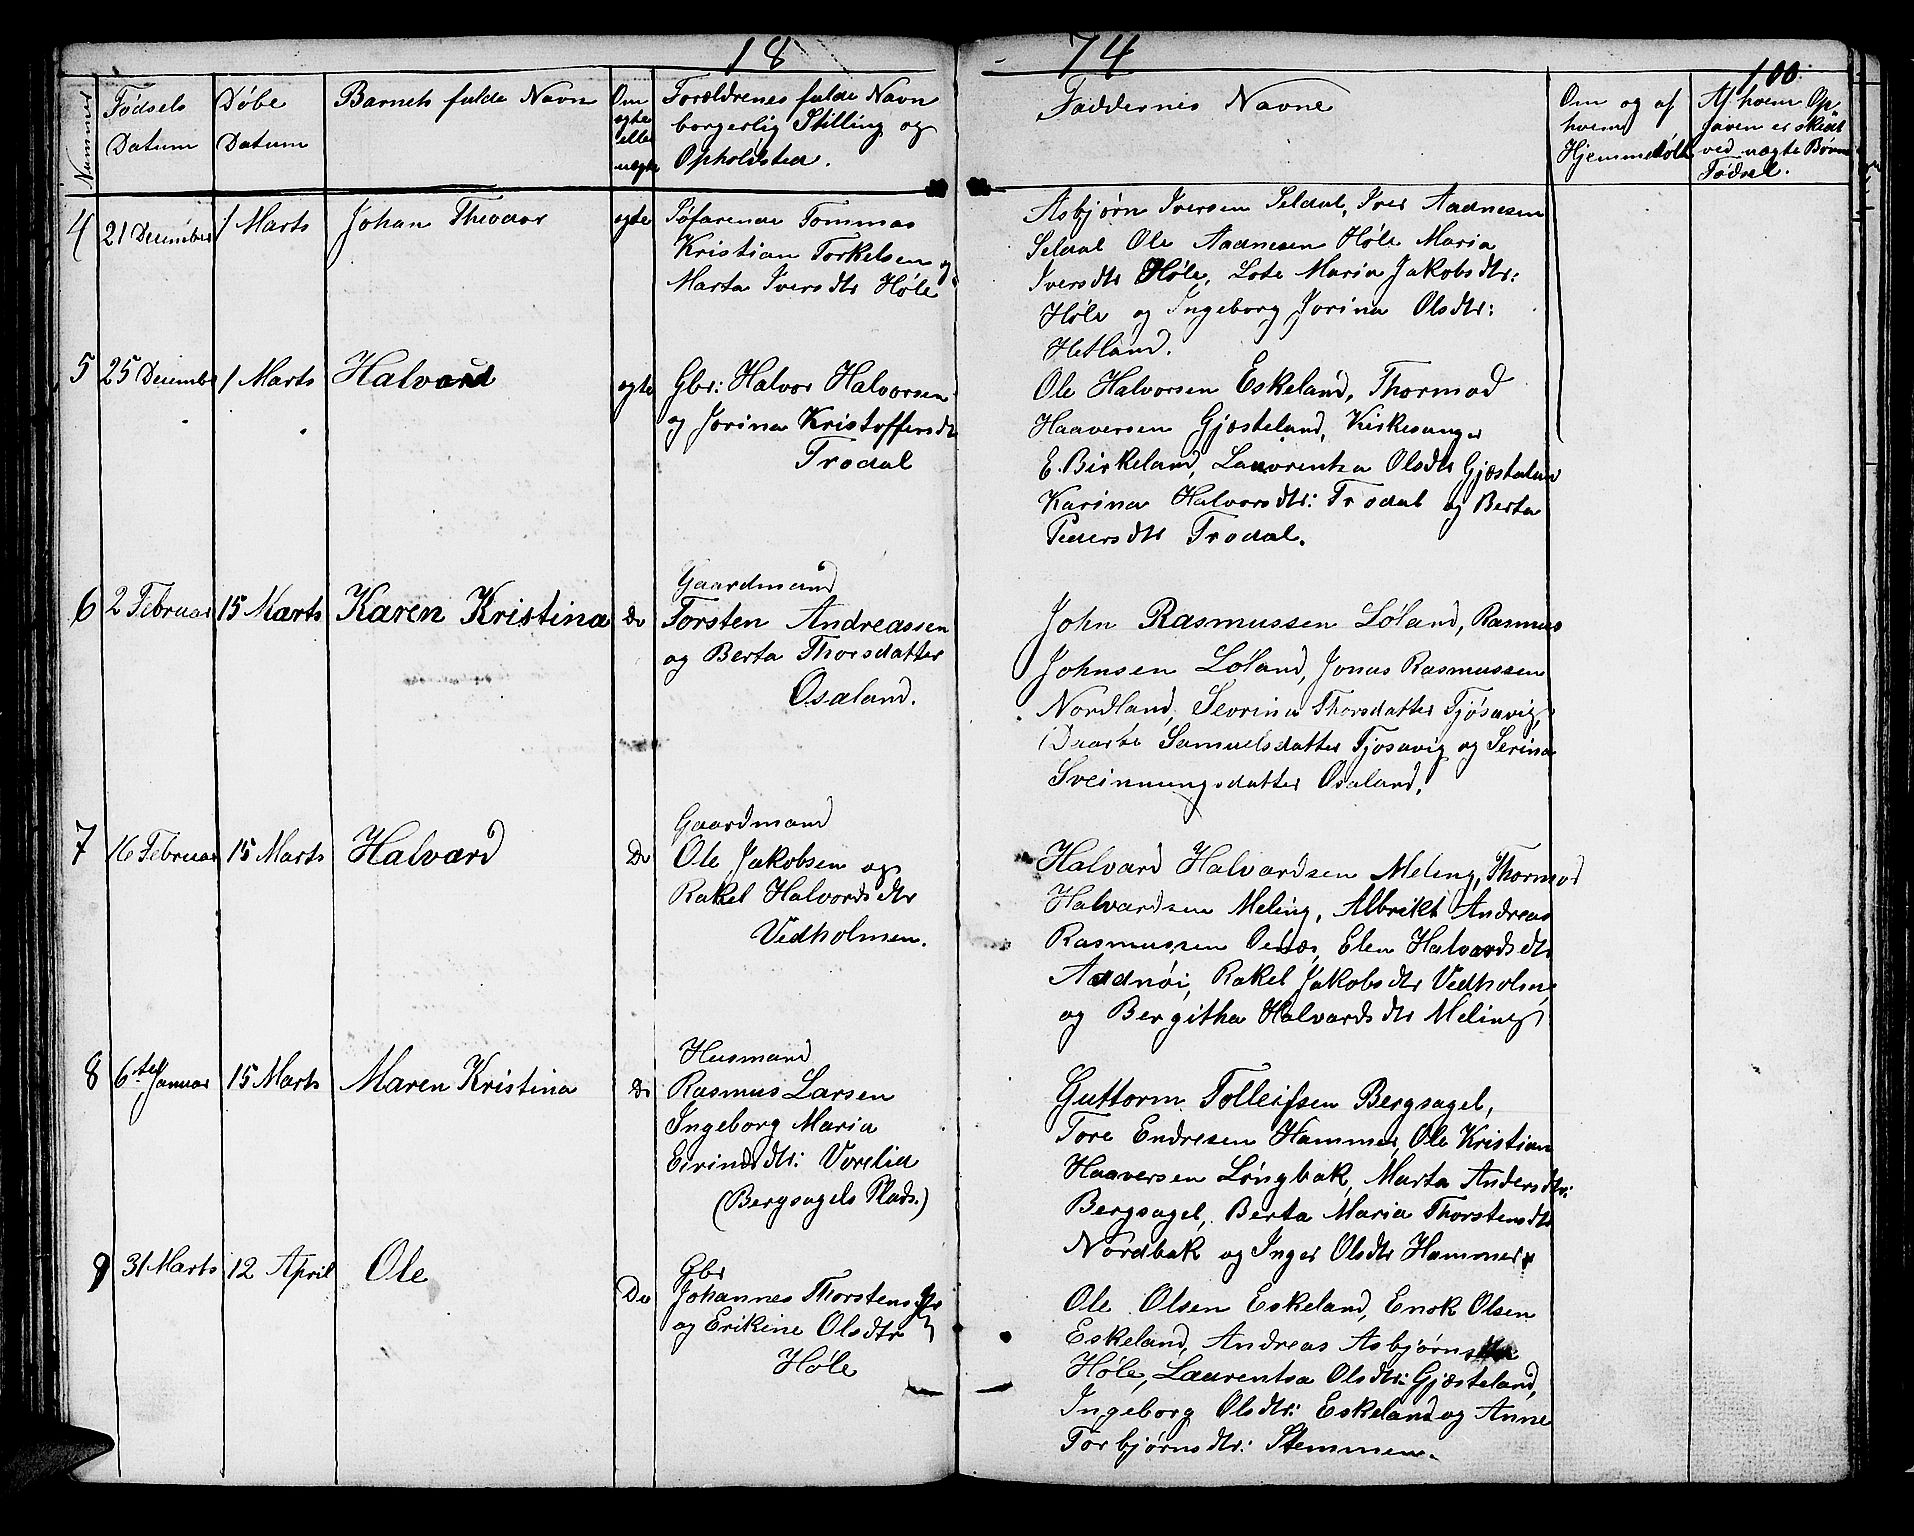 18 74
100
Nummer
Fødsels
Datum
Døbe
Datum
Barnets fulde Navn
Om
ægte
eller
uægte
Forældrenes fulde Navn
borgerlig Stilling og
Opholdsted.
Faddernes Navne
Om og af
hvem
Hjemmedøbt
Af hvem Op-
gaven er skeat
ved uægte Børns
Fødsel.
4 21 December 1 Marts Johan Theodor ægte
Søfarende Tommas
Kristian Torkelsen og
Marta Iversdtr Høle
Asbjørn Iversen Seldal, Iver Aadnesen
Seldal Ole Aadnesen Høle Maria
Iversdtr Høle, Lote Maria Jakobsdtr:
Høle og Ingeborg Jorina Olsdtr:
Hetland.
5 25 December 1 Marts Halvard ægte
Gbr: Halvor Halvorsen
og Jorina Kristoffersdtr
Trodal
Ole Halvorsen Eskeland, Thormod
Haaversen Gjæsteland, Kirkesanger
E. Birkeland, Laurentsa Olsdtr Gjæsteland
Karina Halvorsdtr: Trodal og Berta
Pedersdtr Trodal.
6 2 Februar 15 Marts Karen Kristina Do
Gaardmand
Torsten Andreassen
og Berta Thorsdatter
Osaland.
John Rasmussen Løland, Rasmus
Johnsen Løland, Jonas Rasmussen
Nordland, Seorina Thorsdatter Tjøsavig,
Daarte Samuelsdatter Tjosavig og Serina
Sveinnungsdatter Osaland.
7 16 Februar 15 Marts Halvard Do
Gaardmand
Ole Jakobsen og
Rakel Halvordsdtr
Vedholmen.
Halvard Halvardsen Meling, Thormod
Halvardsen Meling, Albrikt Andreas
Rasmussen Elen Halvordsdtr
Aadnøi, Rakel Jakobsdtr Vedholm,
og Bergitha Halvardsdtr Meling
8 6te Januar 15 Marts Maren Kristina Do
Husmand
Rasmus Larsen
Ingeborg Maria
Eivindsdtr: Vorelia
(Bergsagels Plads.)
Guttorm Tolleifsen Bergsagel,
Tore Endresen Hammer, Ole Kristian
Haaversen Longbak, Marta Andersdtr:
Bergsagel, Berta Maria Thorstensdtr
Nordbak og Inger Olsdtr Hammer.
9 31 Marts 12 April Ole Do
Gbr
Johannes Thorstens
og Erikine Olsdtr
Høle
Ole Olsen Eskeland, Enok Olsen
Eskeland, Andreas Asbjørn
Høle, Laurentsa Olsdtr: Gjæsteland,
Ingeborg Olsdtr: Eskeland og Anne
Torbjørnsdtr: Stemmen.